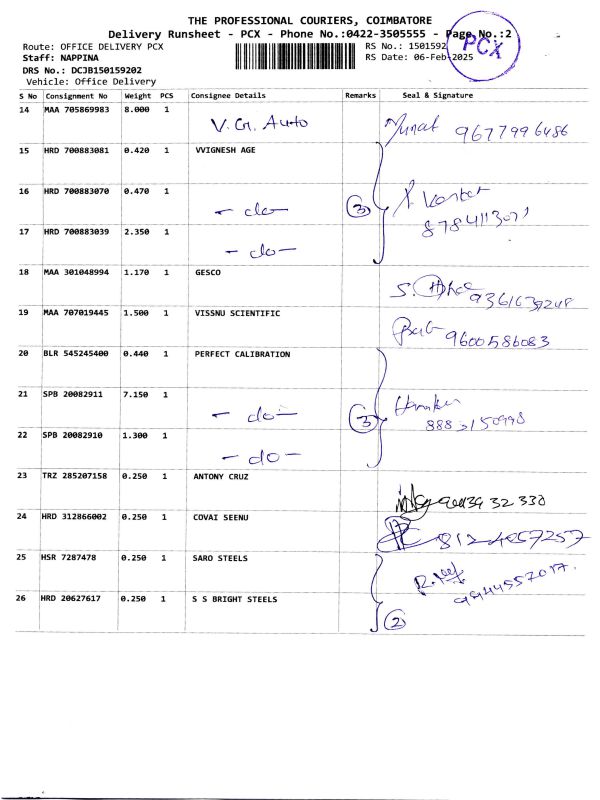 THE PROFESSIONAL COURIERS, COIMBATORE
Delivery Runsheet - PCX - Phone No.:0422-3505555 - Page No.:2
Route: OFFICE DELIVERY PCX
RS No.: 1501592
PCX
Staff: NAPPINA
RS Date: 06-Feb-2025
DRS No.: DCJB150159202
Vehicle: Office Delivery
S No Consignment No Weight PCS Consignee Details Remarks Seal & Signature
14 MAA 705869983 8.000 1 V. G. Auto 9677996486
15 HRD 700883081 0.420 1 VVIGNESH AGE
16 HRD 700883070 0.470 1 - do - 3
17 HRD 700883039 2.350 1 - do -
18 MAA 301048994 1.170 1 GESCO
19 MAA 707019445 1.500 1 VISSNU SCIENTIFIC 9600586083
20 BLR 545245400 0.440 1 PERFECT CALIBRATION
21 SPB 20082911 7.150 1 - do - 3
22 SPB 20082910 1.300 1 - do -
23 TRZ 285207158 0.250 1 ANTONY CRUZ
24 HRD 312866002 0.250 1 COVAI SEENU
25 HSR 7287478 0.250 1 SARO STEELS
26 HRD 20627617 0.250 1 S S BRIGHT STEELS 2